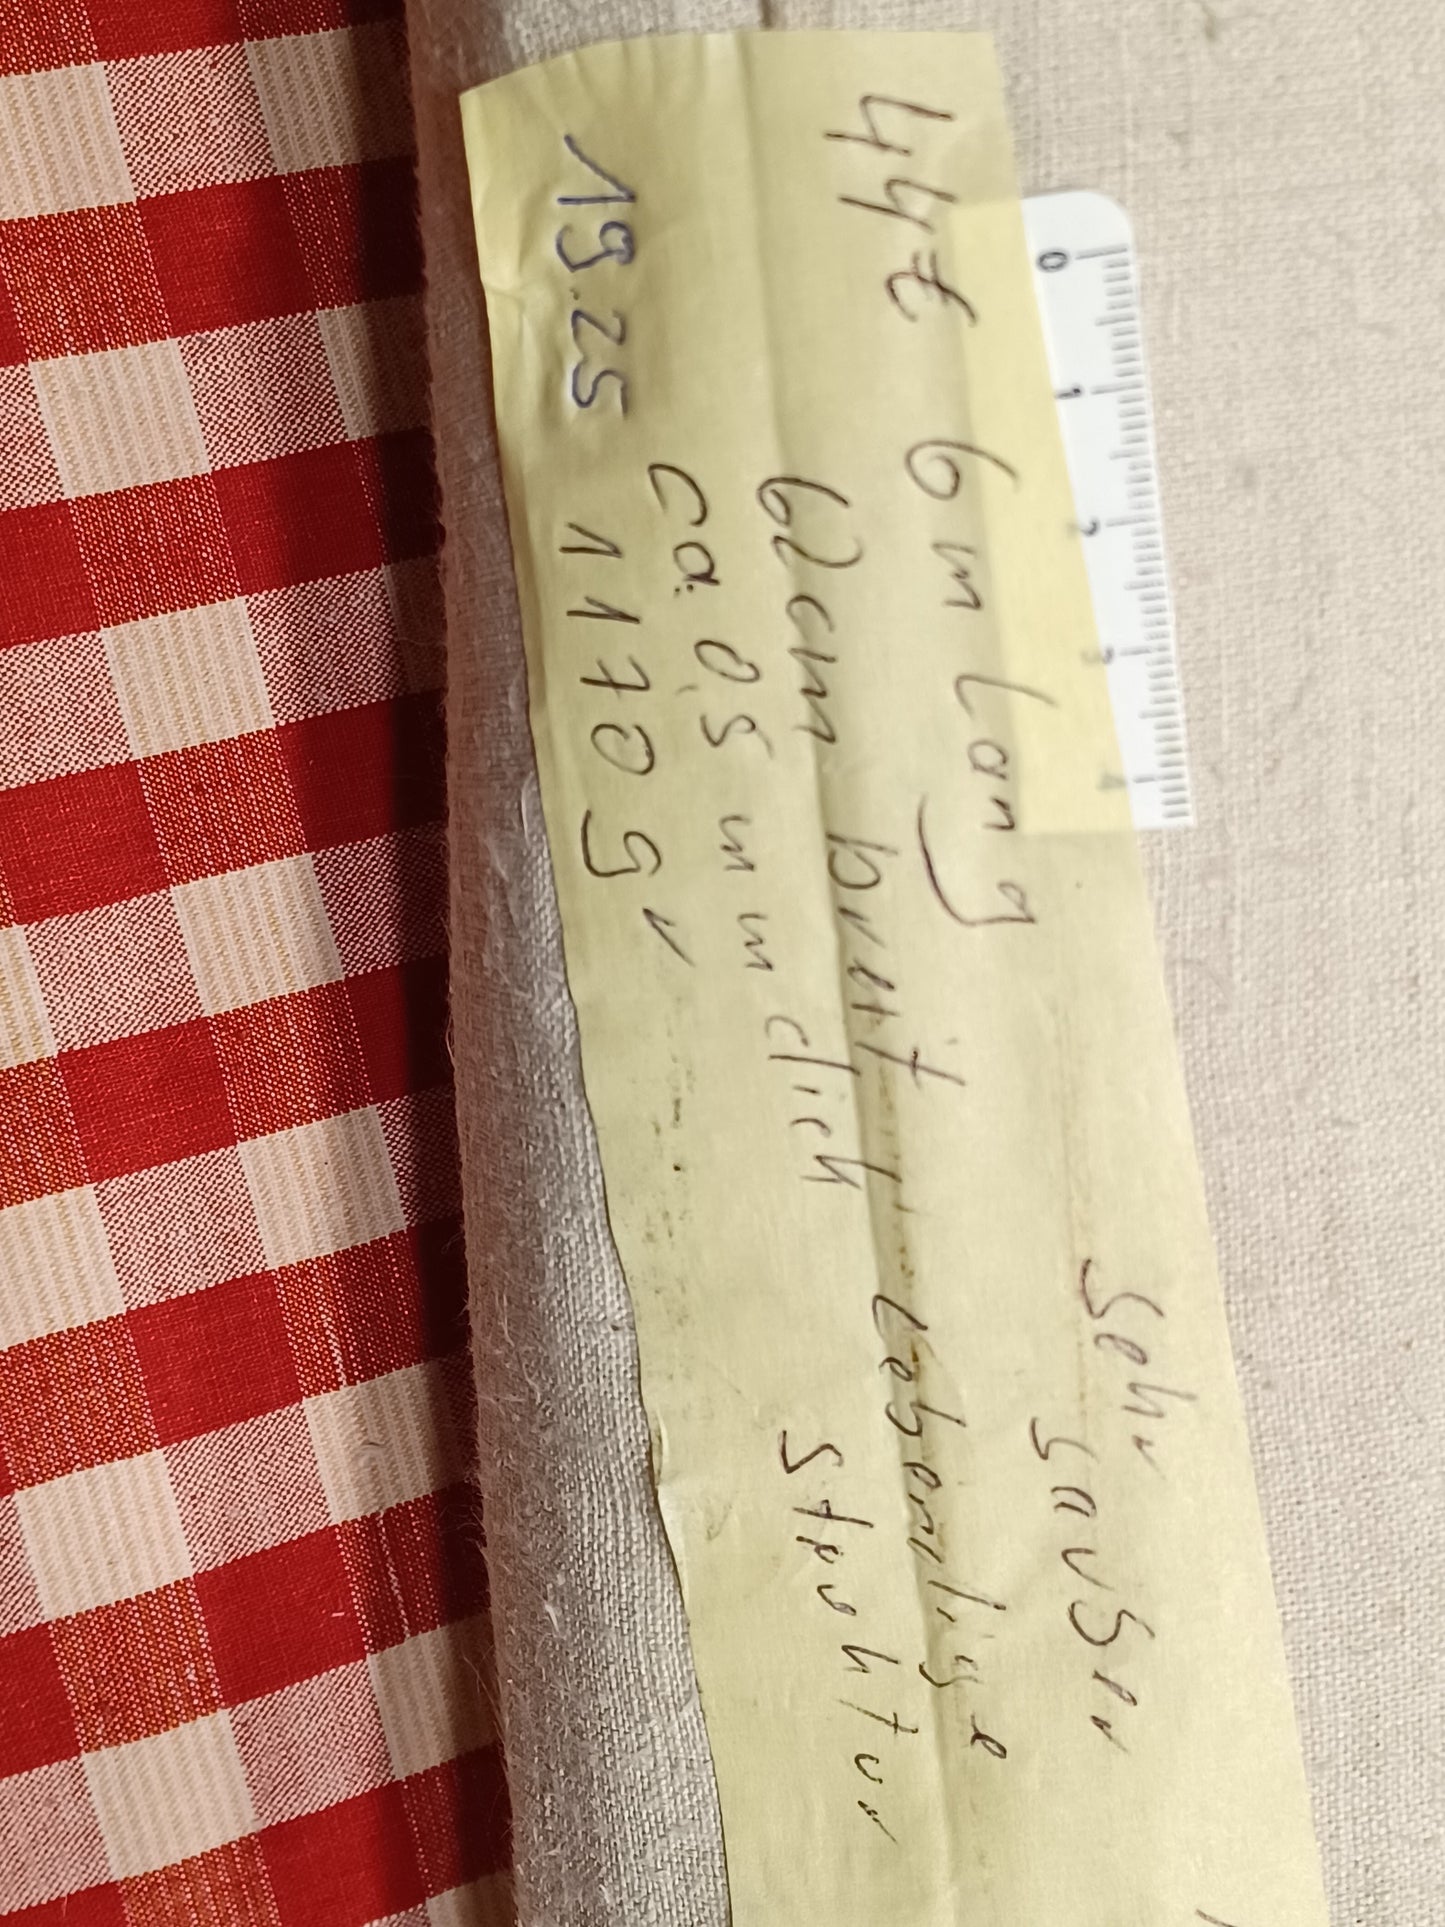 0 1 2 3 4
44€ 6 m Lang sehr sauber
62cm breit, lebendige
ca. 0,5 mm dick Struktur
19.25 1170 gr